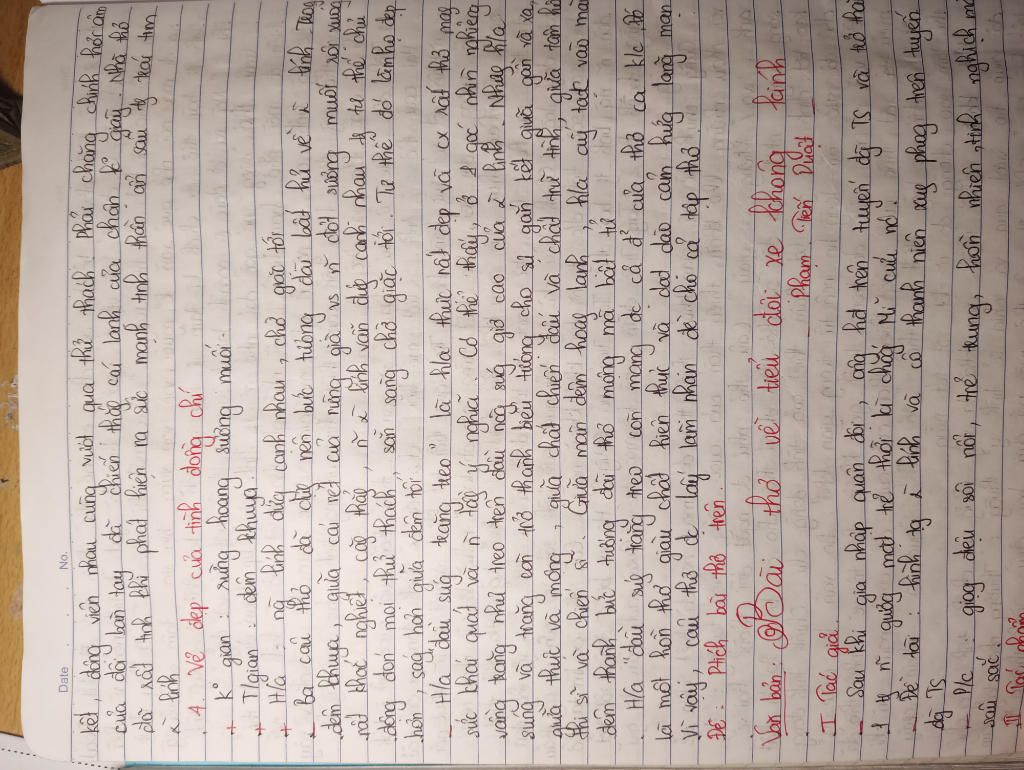 Date No.
kết, động viên nhau cùng vượt qua thử thách. Phải chăng chính hơi ấm
của đôi bàn tay đã chiến thắng cái lạnh của chân k° giày. Nhà thơ
đã xót tinh khi phát hiện ra sức mạnh tinh thần ẩn sau tự trái tim
2 lính
4 Vẻ đẹp của tình đồng chí
+ K° gian: rừng hoang sương muối.
+ T/gian: đêm khuya
+ H/a: ng lính đứng cạnh nhau, chờ giặc tới
- Ba câu thơ đã dựng nên bức tượng đài bất hủ về 2 lính. Trong
đêm khuya, giữa cái rét của rừng già vs n đợt sương muối xối xung
rất khắc nghiệt, cấp tháp, n 2 lính vẫn đứng cạnh nhau ở tư thế chủ
động đón mọi thử thách, sẵn sàng chờ giặc tới. Tư thế đó làm họ đẹp
hơn, sáng hơn giữa đêm tối.
- H/a "đầu súng trăng treo" là h/a thực rất đẹp và cx rất thơ mang
sức khái quát và n tầng ý nghĩa. Có thể thấy, ở 1 góc nhìn nghiêng
vầng trăng như treo trên đầu nòng súng giơ cao của 2 lính. Nhưng h/a
súng và trăng còn trở thành biểu tượng cho sự gắn kết giữa gần và xa,
giữa thực và mộng, giữa chất chiến đấu và chất trữ tình, giữa tâm hồn
thi sĩ và chiến sĩ. Giữa màn đêm hoang lạnh, h/a ấy tạc vào màn
đêm thành bức tượng đài thơ mộng mà bất tử
H/a "đầu súng trăng treo" còn mang đc cả đ² của thơ ca k/c, đó
là một hồn thơ giàu chất hiện thực và dạt dào cảm hứng lãng mạn
Vì vậy, câu thơ đc lấy làm nhan đề cho cả tập thơ
Đề: Ptích bài thơ trên
Văn bản: Bài thơ về tiểu đội xe không kính
Phạm Tiến Duật
I Tác giả
- Sau khi gia nhập quân đội, ông hđ trên tuyến đg TS và trở thà
1 n gương mặt tc thời kì chống Mĩ cứu nc.
- Đề tài: hình tg 2 lính và cô thanh niên xung phong trên tuyến
đg TS
- P/c: giọng điệu sôi nổi, trẻ trung, hồn nhiên, tinh nghịch mà
sâu sắc.
II Tác phẩm